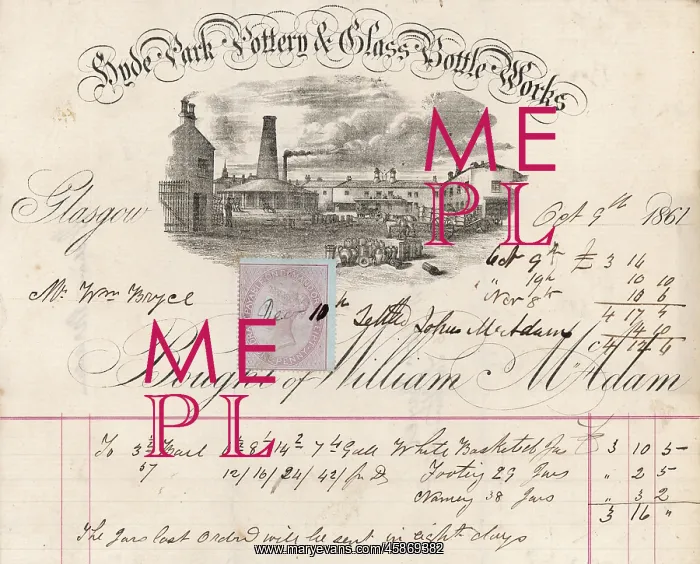 Hyde Park Pottery & Glass Bottle Works
ME
PL
Glasgow Oct 9th 1861
Oct 9th £ 3 14
" 19th 10 10
Nov 8th
4 17 4
4 12 6
Mr Wm Bryce
Dec 10th Settled John McAdam
ME
PL
Bought of William McAdam
To 3½ 14 White Basketed Jars £ 3 10 5
57 12/16/24/42/ Footing 29 Jars " 2 5
38 Jars " 3 2
3 16 "
The Jars last Ordrd will be sent in eight days
www.maryevans.com/45869382